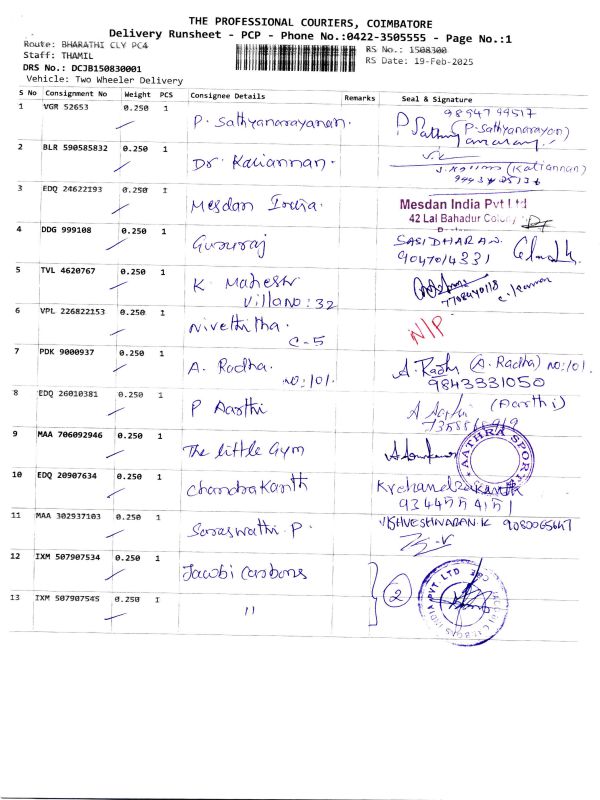 THE PROFESSIONAL COURIERS, COIMBATORE
Delivery Runsheet - PCP - Phone No.:0422-3505555 - Page No.:1
Route: BHARATHI CLY PC4 RS No.: 1508300
Staff: THAMIL RS Date: 19-Feb-2025
DRS No.: DCJB150830001
Vehicle: Two Wheeler Delivery
S No Consignment No Weight PCS Consignee Details Remarks Seal & Signature
1 VGR 52653 0.250 1 P. Sathyanarayanan. 9894794517
(P. Sathyanarayan)
2 BLR 590585832 0.250 1 Dr. Kaliannan. (Kaliannan)
3 EDQ 24622193 0.250 1 Mesdan India. Mesdan India Pvt Ltd
42 Lal Bahadur Colony
4 DDG 999108 0.250 1 Gururaj SASIDHARAN.
9047014331
5 TVL 4620767 0.250 1 K. Mahesh
Villa no: 32 7708440118
6 VPL 226822153 0.250 1 Nivethitha. N/P
C-5
7 PDK 9000937 0.250 1 A. Radha. A. Radha (A. Radha) no: 101.
no: 101. 9843331050
8 EDQ 26010381 0.250 1 P Aarthi (Aarthi)
9 MAA 706092946 0.250 1 The little Gym AATHRA SPORT
10 EDQ 20907634 0.250 1 Chandrakanth K Chandrakanth
9344554151
11 MAA 302937103 0.250 1 Saraswathi P. VISHVESHWARAN.K
12 IXM 507907534 0.250 1 Jacobi Carbons 2 JACOBI CARBONS INDIA PVT. LTD
13 IXM 507907545 0.250 1 "